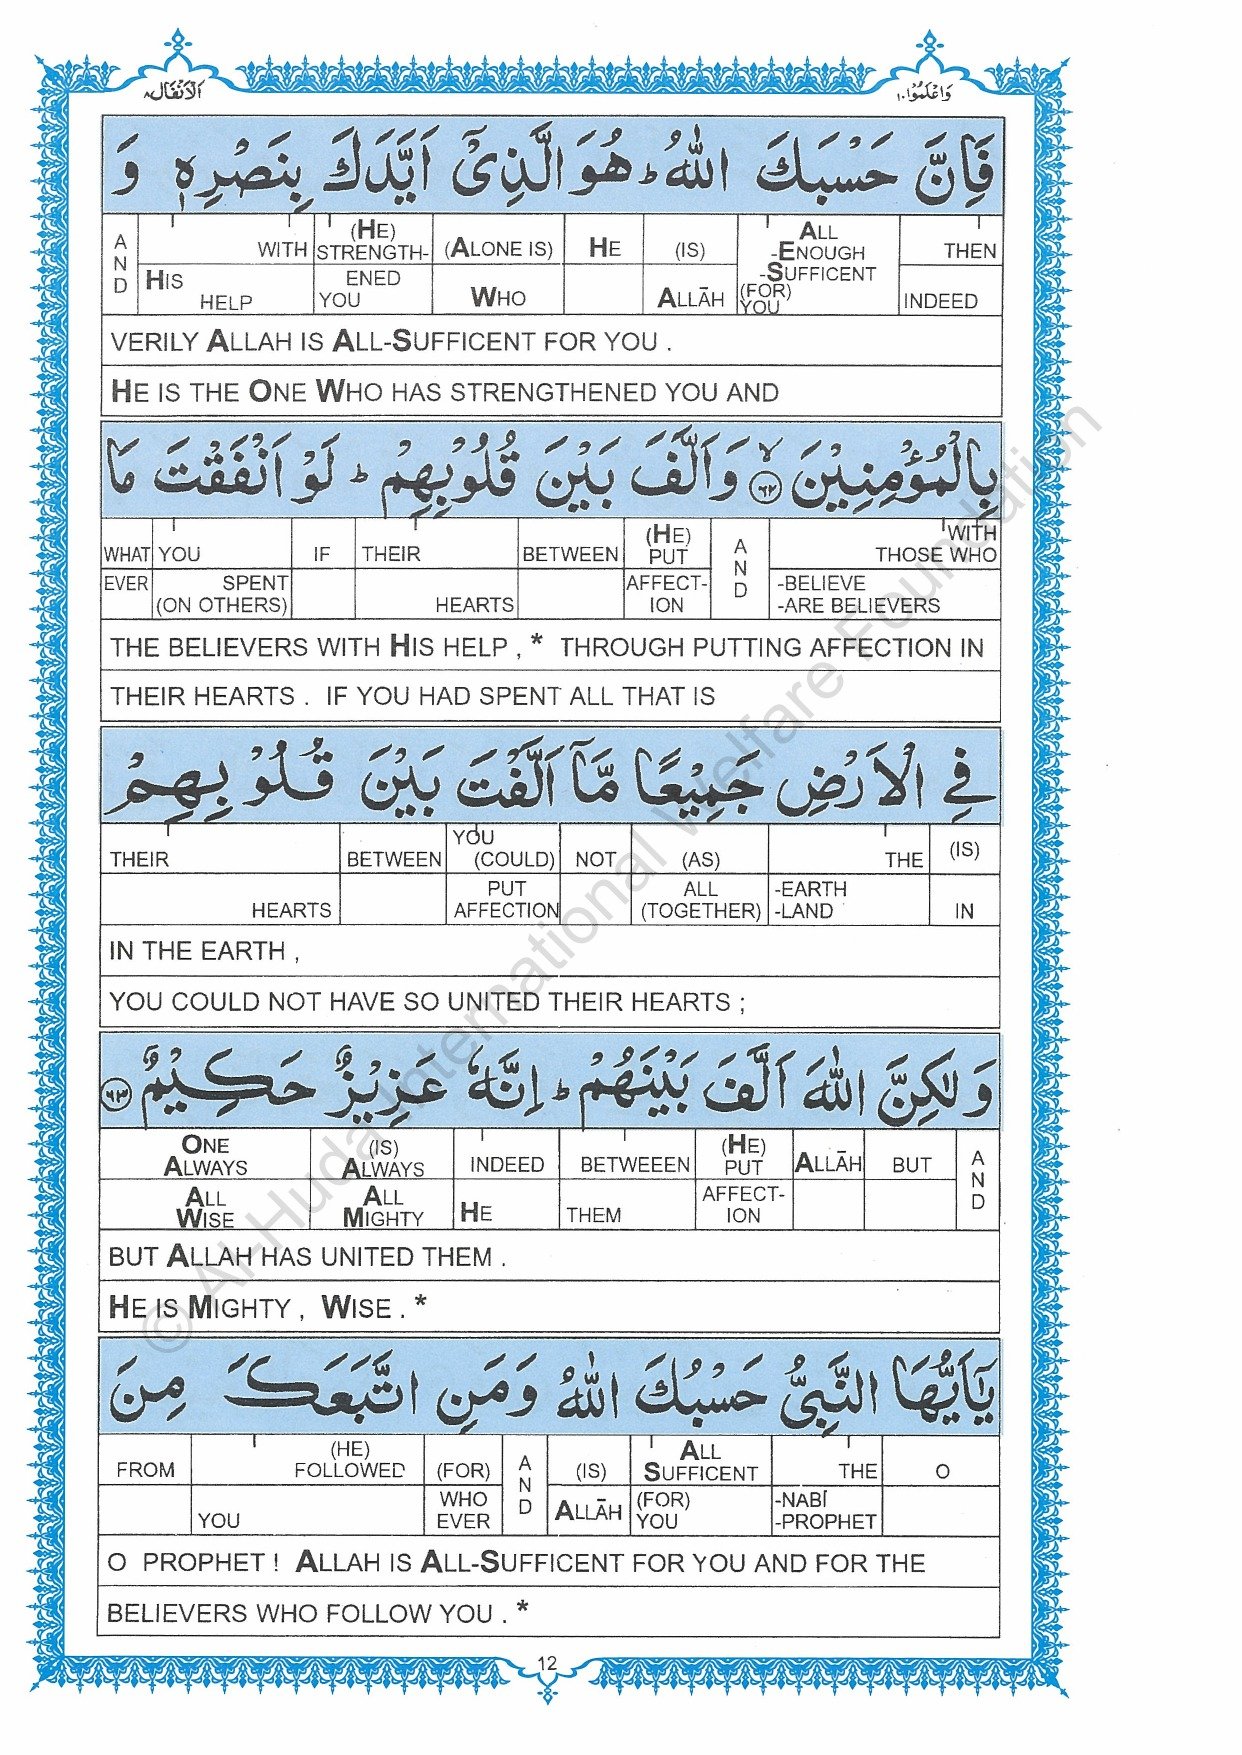 وَاعْلَمُوْا ١٠
اَلْاَنْفَال ٨
فَاِنَّ حَسْبَكَ اللّٰهُ ؕ هُوَ الَّذِىْۤ اَيَّدَكَ بِنَصْرِهٖ وَ
THEN INDEED
ALL -ENOUGH -SUFFICENT (FOR) YOU
(IS) ALLĀH
HE
(ALONE IS) WHO
(HE) STRENGTH-ENED YOU
WITH HIS HELP
AND
VERILY ALLAH IS ALL-SUFFICENT FOR YOU .
HE IS THE ONE WHO HAS STRENGTHENED YOU AND
بِالْمُؤْمِنِيْنَ ۙ ٦٢ وَاَلَّفَ بَيْنَ قُلُوْبِهِمْ ؕ لَوْ اَنْفَقْتَ مَا
WITH THOSE WHO -BELIEVE -ARE BELIEVERS
AND
(HE) PUT AFFECT-ION
BETWEEN
THEIR HEARTS
IF
YOU SPENT (ON OTHERS)
WHAT EVER
THE BELIEVERS WITH HIS HELP , * THROUGH PUTTING AFFECTION IN
THEIR HEARTS . IF YOU HAD SPENT ALL THAT IS
فِى الْاَرْضِ جَمِيْعًا مَّاۤ اَلَّفْتَ بَيْنَ قُلُوْبِهِمْ
(IS) IN
THE -EARTH -LAND
(AS) ALL (TOGETHER)
NOT
YOU (COULD) PUT AFFECTION
BETWEEN
THEIR HEARTS
IN THE EARTH ,
YOU COULD NOT HAVE SO UNITED THEIR HEARTS ;
وَ لٰكِنَّ اللّٰهَ اَلَّفَ بَيْنَهُمْ ؕ اِنَّهٗ عَزِيْزٌ حَكِيْمٌ ٦٣
AND
BUT
ALLĀH
(HE) PUT AFFECT-ION
BETWEEEN THEM
INDEED HE
(IS) ALWAYS ALL MIGHTY
ONE ALWAYS ALL WISE
BUT ALLAH HAS UNITED THEM .
HE IS MIGHTY , WISE . *
يٰۤاَيُّهَا النَّبِىُّ حَسْبُكَ اللّٰهُ وَمَنِ اتَّبَعَكَ مِنَ
O
THE -NABĪ -PROPHET
ALL SUFFICENT (FOR) YOU
(IS) ALLĀH
AND
(FOR) WHO EVER
(HE) FOLLOWED YOU
FROM
O PROPHET ! ALLAH IS ALL-SUFFICENT FOR YOU AND FOR THE
BELIEVERS WHO FOLLOW YOU . *
12
© Al-Huda International Welfare Foundation